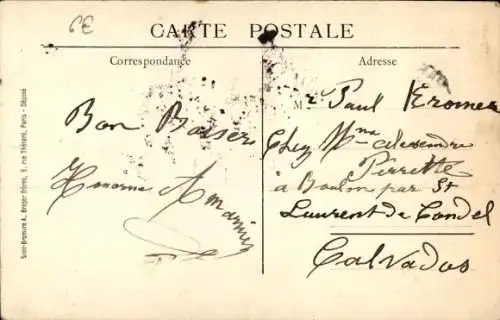 6E
CARTE POSTALE
Correspondance
Adresse
Bon Baiser
Mr Paul Kromer
Chez Mme Alexandre
Pierrette
à Boulon par St
Laurent de Condel
Calvados
Simi-Bromure A. Breger frères, 9, rue Thénard, Paris - Déposé